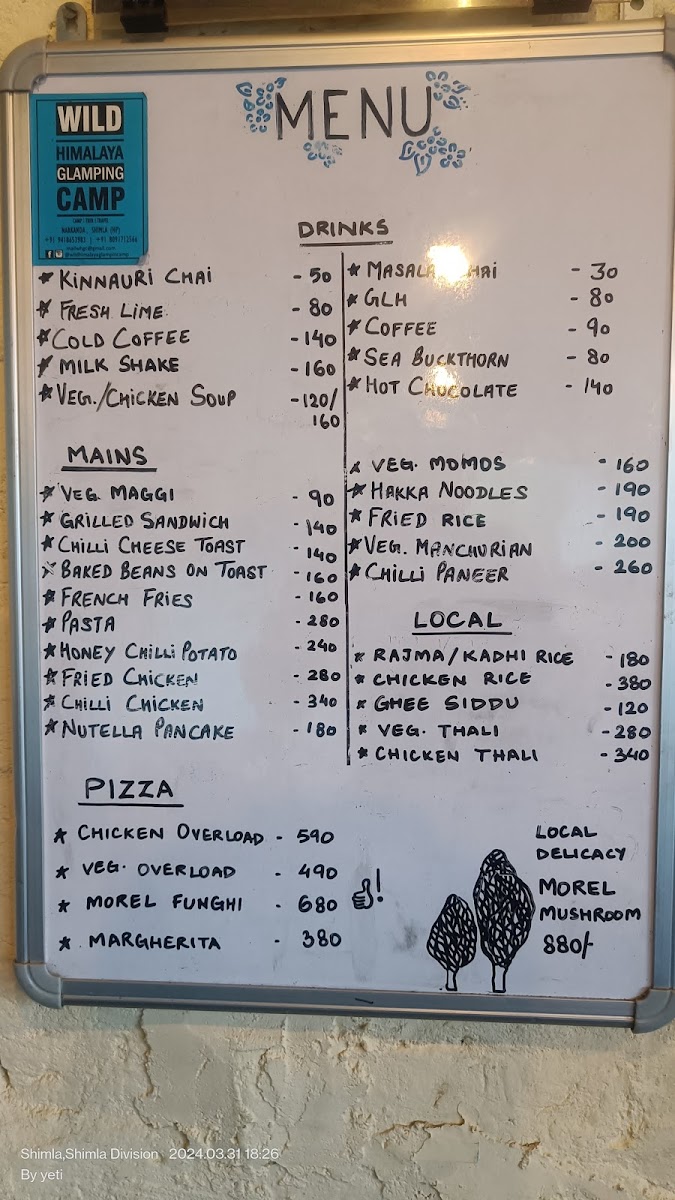 WILD
HIMALAYA
GLAMPING
CAMP
NARKANDA, SHIMLA (HP)
MENU
DRINKS
★ KINNAURI CHAI - 50
★ FRESH LIME - 80
★ COLD COFFEE - 140
★ MILK SHAKE - 160
★ VEG./CHICKEN SOUP - 120/
160
★ MASALA CHAI - 30
★ GLH - 80
★ COFFEE - 90
★ SEA BUCKTHORN - 80
★ HOT CHOCOLATE - 140
MAINS
★ VEG MAGGI - 90
★ GRILLED SANDWICH - 140
★ CHILLI CHEESE TOAST - 140
★ BAKED BEANS ON TOAST - 160
★ FRENCH FRIES - 160
★ PASTA - 280
★ HONEY CHILLI POTATO - 240
★ FRIED CHICKEN - 280
★ CHILLI CHICKEN - 340
★ NUTELLA PANCAKE - 180
★ VEG. MOMOS - 160
★ HAKKA NOODLES - 190
★ FRIED RICE - 190
★ VEG. MANCHURIAN - 200
★ CHILLI PANEER - 260
LOCAL
★ RAJMA/KADHI RICE - 180
★ CHICKEN RICE - 380
★ GHEE SIDDU - 120
★ VEG. THALI - 280
★ CHICKEN THALI - 340
PIZZA
★ CHICKEN OVERLOAD - 590
★ VEG. OVERLOAD - 490
★ MOREL FUNGHI - 680 !
★ MARGHERITA - 380
LOCAL
DELICACY
MOREL
MUSHROOM
880/-
Shimla,Shimla Division 2024.03.31 18:26
By yeti